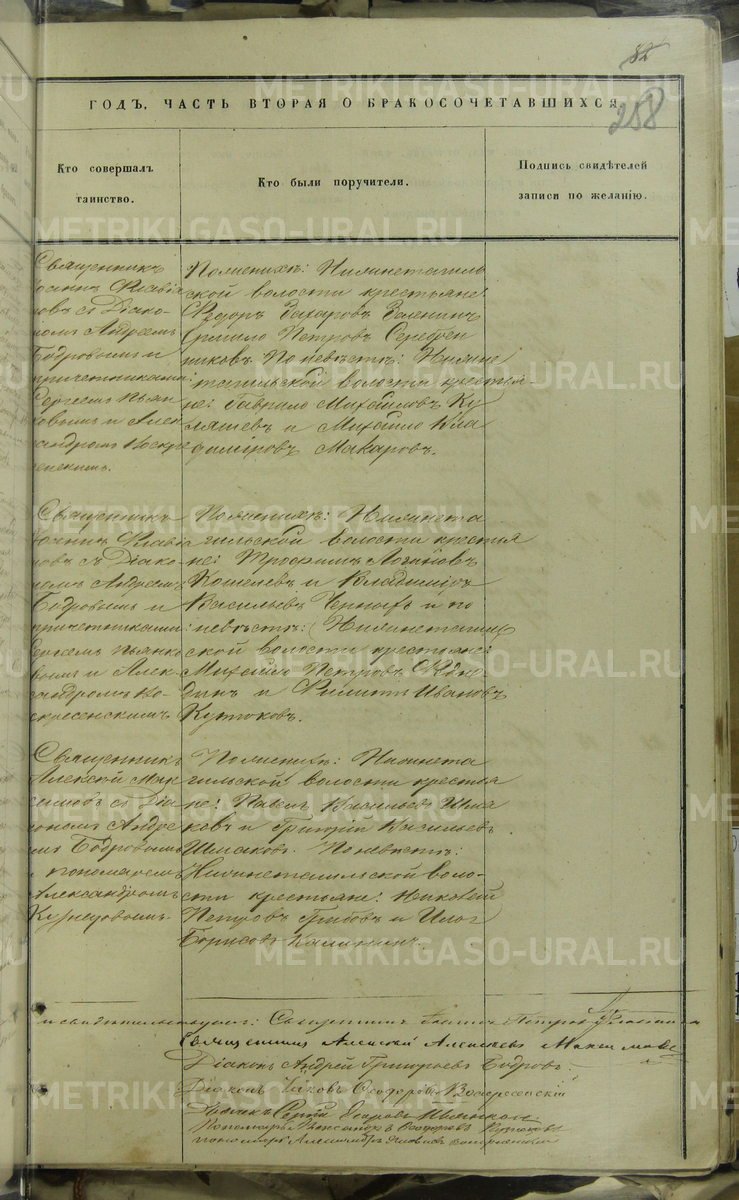 82
258
ГОДЪ, ЧАСТЬ ВТОРАЯ О БРАКОСОЧЕТАВШИХСЯ
Кто совершалъ
таинство.
Кто были поручители.
Подпись свидѣтелей
записи по желанію.
Священникъ
Іоаннъ Флавіа
новъ съ Діако-
номъ Андреемъ
Бодровымъ и
причетниками:
Сергеемъ Пьян
ковымъ и Алек
сандромъ Воскре
сенскимъ.
По женихѣ: Нижнетагиль
ской волости крестьяне:
Ѳедоръ Захаровъ
Петровъ Серебрен
никовъ. По невѣстѣ: Нижне
тагильской волости крестья-
не: Гаврило Михайловъ Ку
ляшевъ и Михайло Вла
диміровъ Макаровъ.
Священникъ
Іоаннъ Флавіа
новъ съ Діако-
номъ Андреемъ
Бодровымъ и
причетниками:
Сергеемъ Пьянко
вымъ и Алек
сандромъ Во-
скресенскимъ.
По женихѣ: Нижнета
гильской волости крестья
не: Трофимъ Логиновъ
Кошелевъ и Владиміръ
Васильевъ Черныхъ и по
невѣстѣ: Нижнетагиль
ской волости крестьяне:
Михайло Петровъ
и Филиппъ Ивановъ
Кутюковъ.
Священникъ
Алексѣй Мак
симовъ съ Діа
кономъ Андре
емъ Бодровымъ
и пономаремъ
Александромъ
Кузнецовымъ.
По женихѣ: Нижнета
гильской волости крестья
не: Павелъ Васильевъ Шма
ковъ и Григорій Васильевъ
Шмаковъ. По невѣстѣ:
Нижнетагильской воло-
сти крестьяне: Николай
Петровъ Грибовъ и
Борисовъ Калининъ.
Священникъ Іоаннъ Петровъ
Священникъ Алексѣй Алексѣевъ Максимовъ
Діаконъ Андрей Григорьевъ Бодровъ.
Діаконъ Іаковъ Ѳеодоровъ Воскресенскій
Сергій Пьянковъ.
Пономарь Александръ Ѳеодоровъ Кузнецовъ
пономарь Александръ Воскресенскій
METRIKI.GASO-URAL.RU